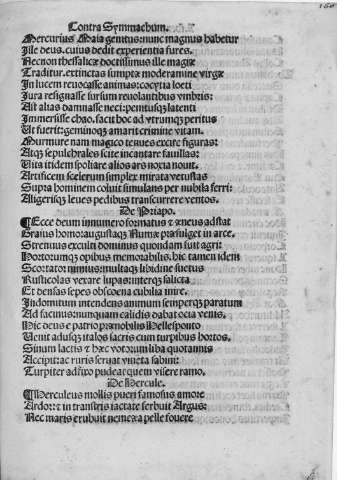 Contra Symmachum.
Mercurius Maia genitus: nunc magnus habetur
Ille deus. cuius dedit experientia fures.
Necnon thessalicæ doctissimus ille magiæ
Traditur. extinctas sumptæ moderamine virgæ
In lucem reuocasse animas: cocyti a loeti
Iura resignasse sursum reuolantibus vmbris:
Ast alias damnasse neci: penitusq; latenti
Immersisse chao. facit hoc ad vtrumq; peritus
Ut fuerit: geminoq; amarit crimine vitam.
Murmure nam magico tenues excire figuras:
Atq; sepulchrales scite incantare fauillas:
Vita itidem spoliare alios ars noxia nouit.
Artificem scelerum simplex mirata vetustas
Supra hominem coluit simulans per nubila ferri:
Aligerisq; leues pedibus transcurrere ventos.
De Priapo.
¶Ecce deum in numero formatus & æneus adstat
Graius homo: augustaq; Numæ præfulget in arce.
Strenuus exculti dominus quondam fuit agri:
Hortorumq; opibus memorabilis. hic tamen idem
Scortator nimius: multaq; libidine suetus
Rusticolas vexare lupas: interq; salicta
Et densas sepes obscoena cubilia inire.
Indomitum intendens animum semperq; paratum
Ad facinus: nunquam calidis dabat ocia venis.
Hic deus e patrio prænobilis Hellesponto
Venit adusq; italos sacris cum turpibus hortos.
Sinum lactis & hæc votorum liba quotannis
Accipit: ac ruris seruat vineta sabini:
Turpiter adfixo pudeat quem visere ramo.
De Hercule.
¶Herculeus mollis pueri famosus amore
Ardor: & in transtris iactate ferbuit Argus:
Nec maris erubuit nemeæa pelle fouere